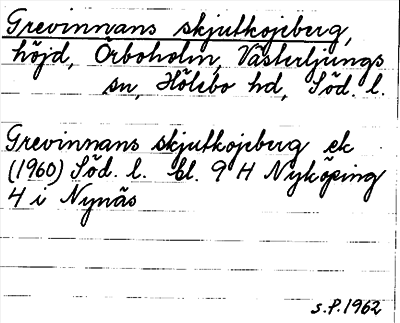 Grevinnans skjutkojeberg,
höjd, Örboholm, Västerljungs
sn, Hölebo hd, Söd. l.
Grevinnans skjutkojeberg ek
(1960) Söd. l. bl. 9 H Nyköping
4 i Nynäs
s.P. 1962